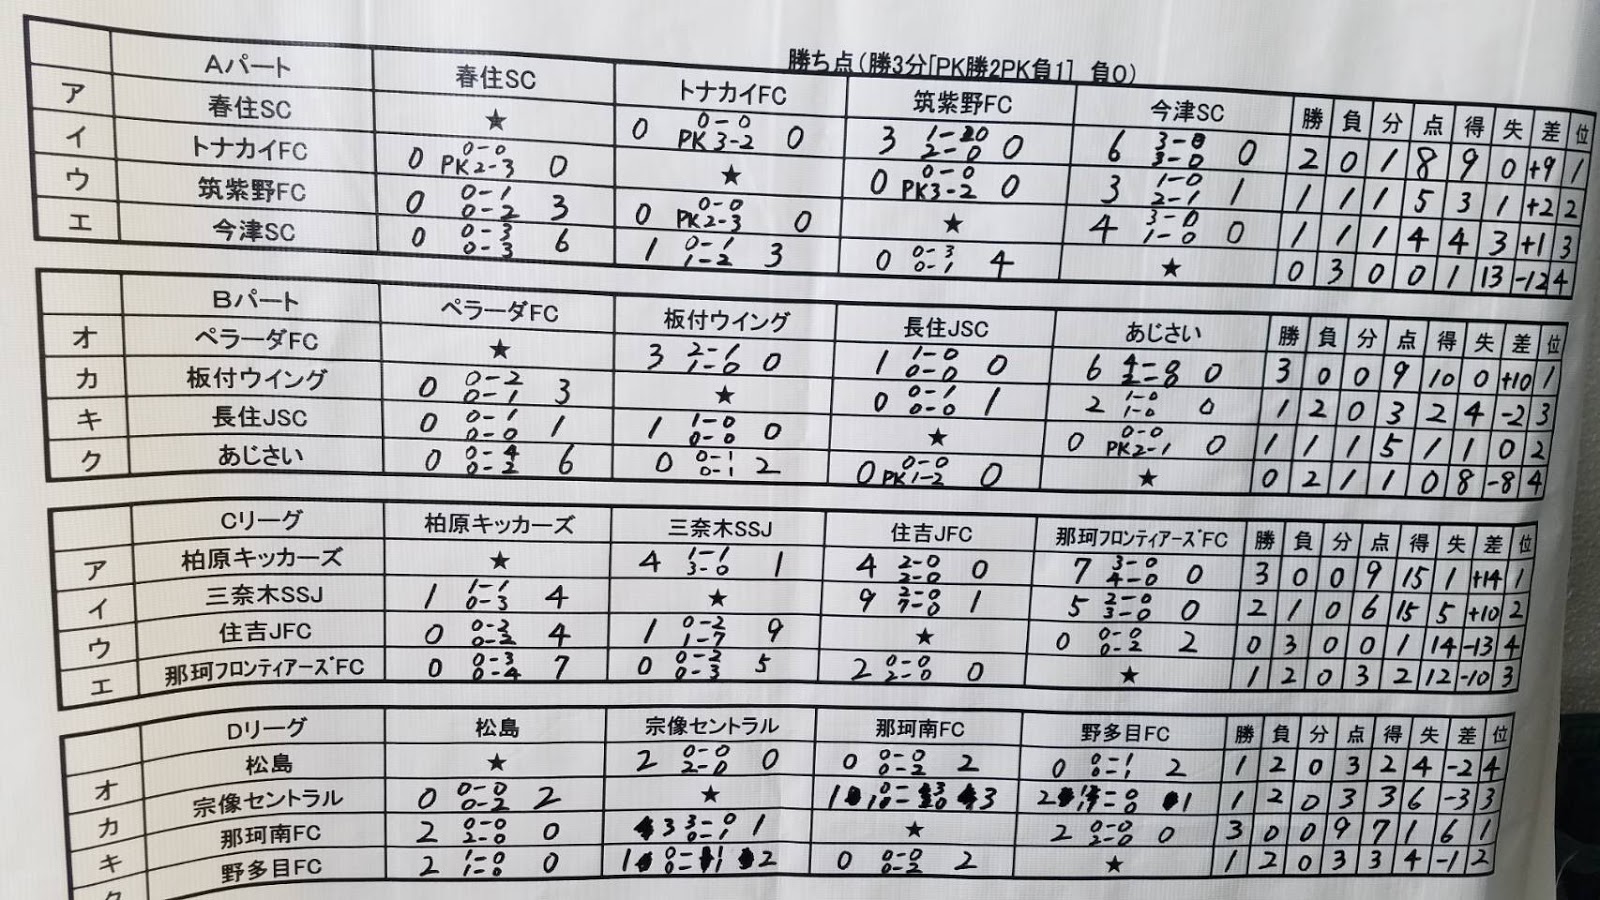 勝ち点(勝3分[PK勝2PK負1] 負0)
Aパート 春住SC トナカイFC 筑紫野FC 今津SC 勝 負 分 点 得 失 差 位
ア 春住SC ★ 0 0-0 PK3-2 0 3 1-0 2-0 0 6 3-0 3-0 0 2 0 1 8 9 0 +9 1
イ トナカイFC 0 0-0 PK2-3 0 ★ 0 0-0 PK3-2 0 3 1-0 2-1 1 1 1 1 5 3 1 +2 2
ウ 筑紫野FC 0 0-1 0-2 3 0 0-0 PK2-3 0 ★ 4 3-0 1-0 0 1 1 1 4 4 3 +1 3
エ 今津SC 0 0-3 0-3 6 1 0-1 1-2 3 0 0-3 0-1 4 ★ 0 3 0 0 1 13 -12 4
Bパート ペラーダFC 板付ウイング 長住JSC あじさい 勝 負 分 点 得 失 差 位
オ ペラーダFC ★ 3 2-1 1-0 0 1 1-0 0-0 0 6 4-0 2-0 0 3 0 0 9 10 0 +10 1
カ 板付ウイング 0 0-2 0-1 3 ★ 0 0-1 0-0 1 2 1-0 1-0 0 1 2 0 3 2 4 -2 3
キ 長住JSC 0 0-1 0-0 1 1 1-0 0-0 0 ★ 0 0-0 PK2-1 0 1 1 1 5 1 1 0 2
ク あじさい 0 0-4 0-2 6 0 0-1 0-1 2 0 0-0 PK1-2 0 ★ 0 2 1 1 0 8 -8 4
Cリーグ 柏原キッカーズ 三奈木SSJ 住吉JFC 那珂フロンティアーズFC 勝 負 分 点 得 失 差 位
ア 柏原キッカーズ ★ 4 1-1 3-0 1 4 2-0 2-0 0 7 3-0 4-0 0 3 0 0 9 15 1 +14 1
イ 三奈木SSJ 1 1-1 0-3 4 ★ 9 2-0 7-0 1 5 2-0 3-0 0 2 1 0 6 15 5 +10 2
ウ 住吉JFC 0 0-2 0-2 4 1 0-2 1-7 9 ★ 0 0-0 0-2 2 0 3 0 0 1 14 -13 4
エ 那珂フロンティアーズFC 0 0-3 0-4 7 0 0-2 0-3 5 2 0-0 2-0 0 ★ 1 2 0 3 2 12 -10 3
Dリーグ 松島 宗像セントラル 那珂南FC 野多目FC 勝 負 分 点 得 失 差 位
オ 松島 ★ 2 0-0 2-0 0 0 0-0 0-2 2 0 0-1 0-1 2 1 2 0 3 2 4 -2 4
カ 宗像セントラル 0 0-0 0-2 2 ★ 1 3 2 1 1 2 0 3 3 6 -3 3
キ 那珂南FC 2 0-0 2-0 0 3 3-0 0-1 1 ★ 2 0-0 2-0 0 3 0 0 9 7 1 6 1
ク 野多目FC 2 1-0 1-0 0 1 2 0 0-0 0-2 2 ★ 1 2 0 3 3 4 -1 2